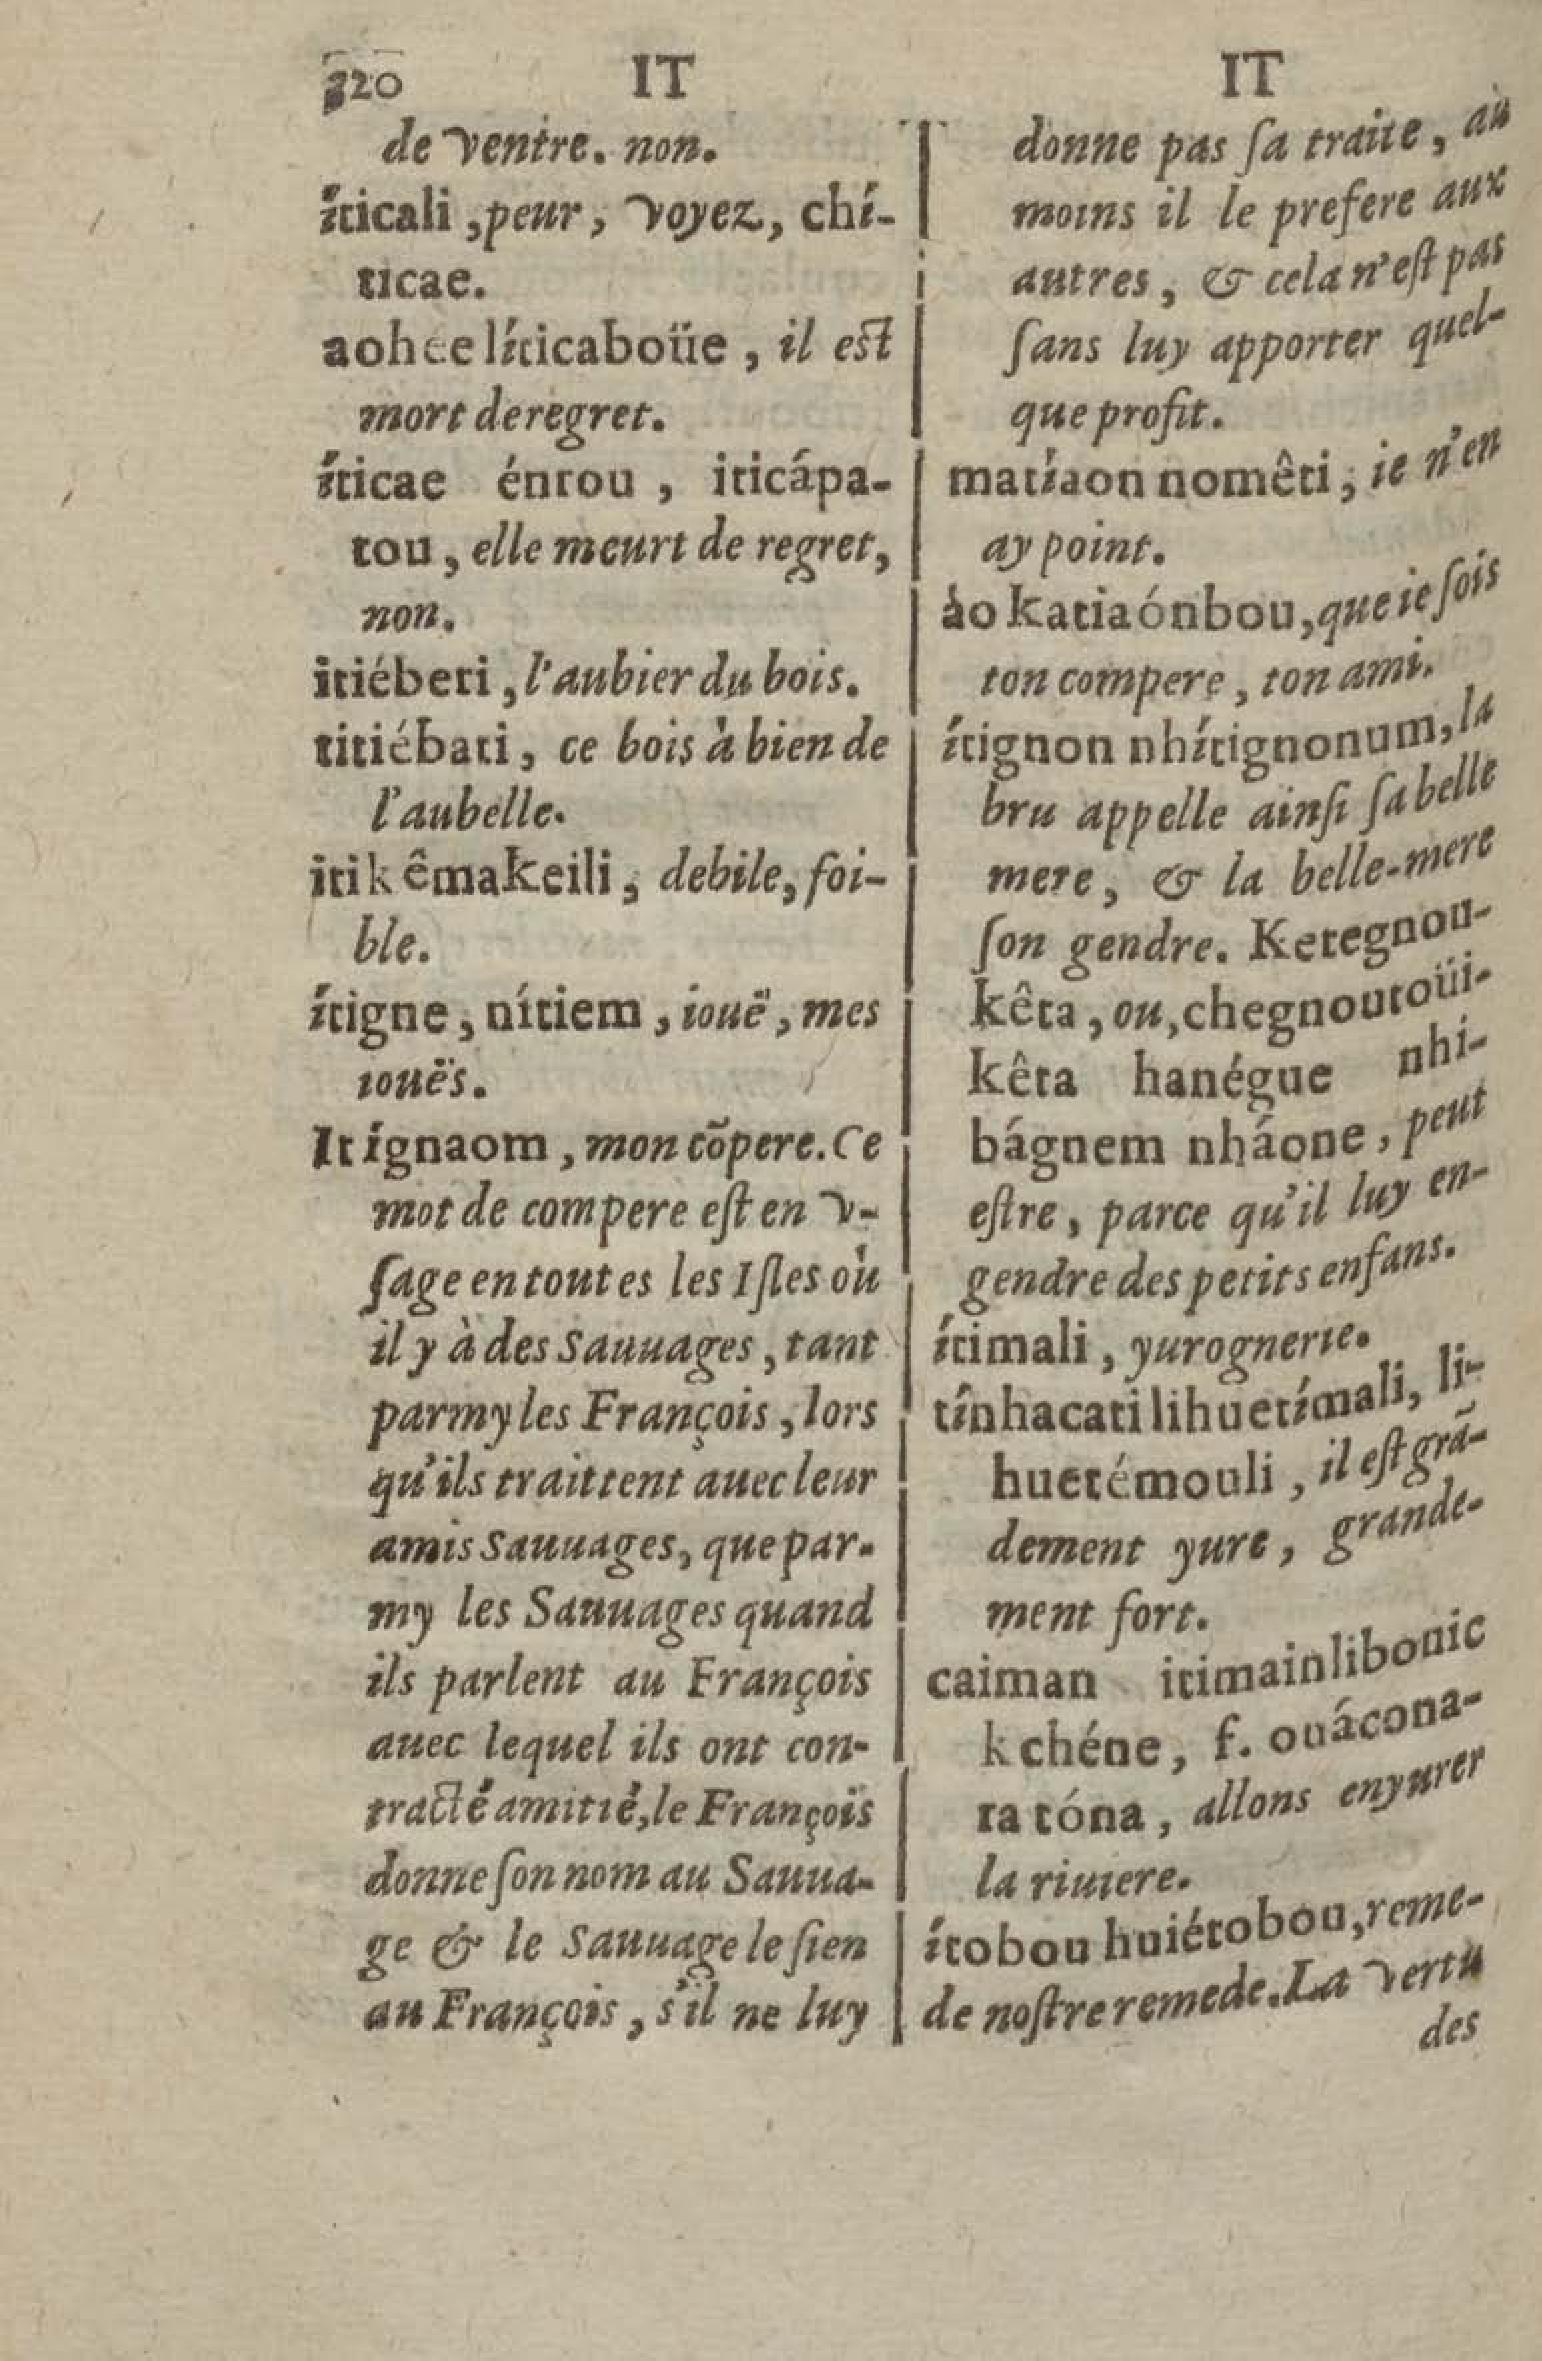 320 IT IT
de ventre. non.
íticali, peur, voyez, chí-
ticae.
aohee líticaboüe, il est
mort de regret.
íticae éntou, iticápa-
tou, elle meurt de regret,
non.
itiéberi, l'aubier du bois.
titiébati, ce bois à bien de
l'aubelle.
itikêmakeili, debile, foi-
ble.
ítigne, nítiem, iouë, mes
iouës.
Itígnaom, mon cõpere. Ce
mot de compere eſt en v-
ſage en toutes les Iſles où
il y à des Sauuages, tant
parmy les François, lors
qu'ils traittent auec leur
amis Sauuages, que par-
my les Sauuages quand
ils parlent au François
auec lequel ils ont con-
tracté amitié, le François
donne ſon nom au Sauua-
ge & le Sauuage le ſien
au François, s'il ne luy
donne pas ſa traite, au
moins il le prefere aux
autres, & cela n'eſt pas
ſans luy apporter quel-
que profit.
matíaon nomêti, ie n'en
ay point.
ào katiaónbou, que ie ſois
ton compere, ton ami.
ítignon nhítignonum, la
bru appelle ainſi ſa belle
mere, & la belle-mere
ſon gendre. Ketegnou-
kêta, ou, chegnoutoüi-
kêta hanégue nhi-
bágnem nháone, peut
eſtre, parce qu'il luy en-
gendre des petits enfans.
ítimali, yurognerie.
tínhacati lihuetímali, li-
huetémouli, il eſt grã-
dement yure, grande-
ment fort.
caiman itimainlibonic
kchéne, f. ouácona-
ra tóna, allons enyurer
la riuiere.
ítobou huiétobou, reme-
de noſtre remede. La vertu
des